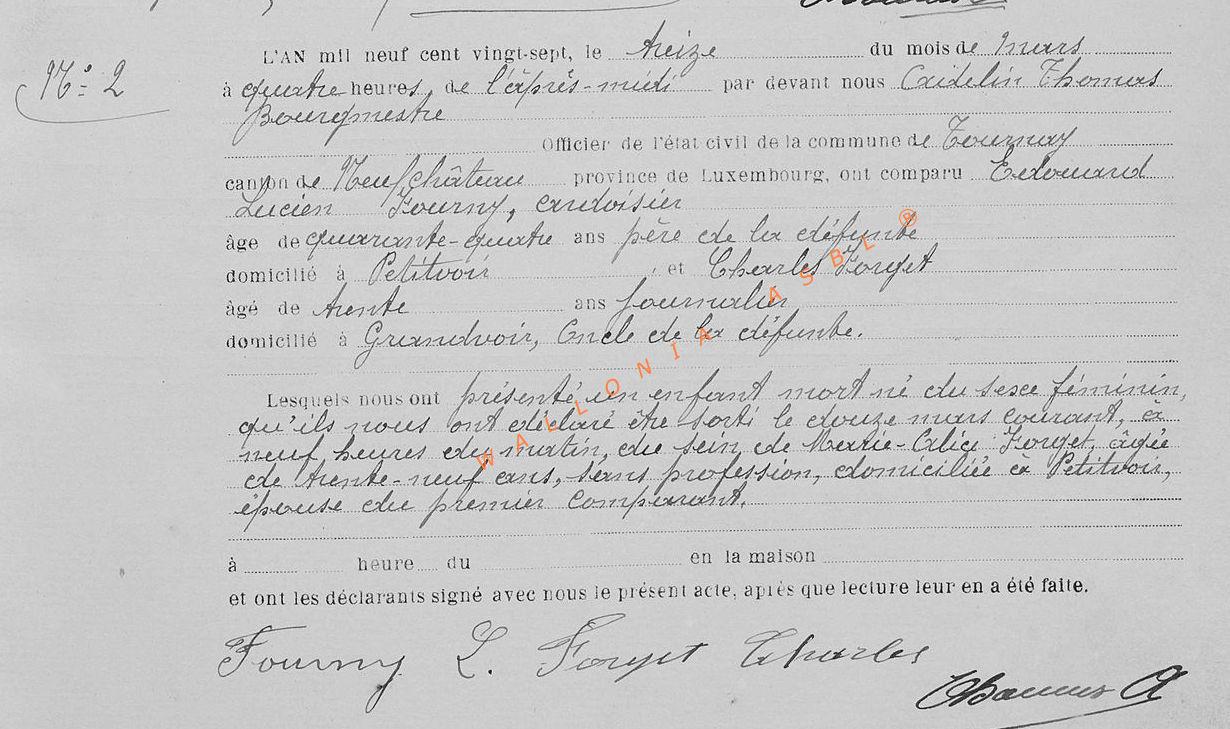 N° 2
L'AN mil neuf cent vingt-sept, le treize du mois de mars
à quatre heures de l'après-midi par devant nous Caidelin Thomas
Bourgmestre
Officier de l'état civil de la commune de Tournay
canton de Neufchâteau province de Luxembourg, ont comparu Edouard
Lucien Fourny, ardoisier
âge de quarante-quatre ans père de la défunte
domicilié à Petitvoir, et Charles Forget
âgé de trente ans journalier
domicilié à Grandvoir, Oncle de la défunte.
Lesquels nous ont présenté un enfant mort né du sexe féminin,
qu'ils nous ont déclaré être sorti le douze mars courant, à
neuf heures du matin, du sein de Marie-Alice Forget, âgée
de trente-neuf ans, sans profession, domiciliée à Petitvoir,
épouse du premier comparant.
à heure du en la maison
et ont les déclarants signé avec nous le présent acte, après que lecture leur en a été faite.
Fourny L. Forget Charles
Thomas A
WALLONIA ASBL ®